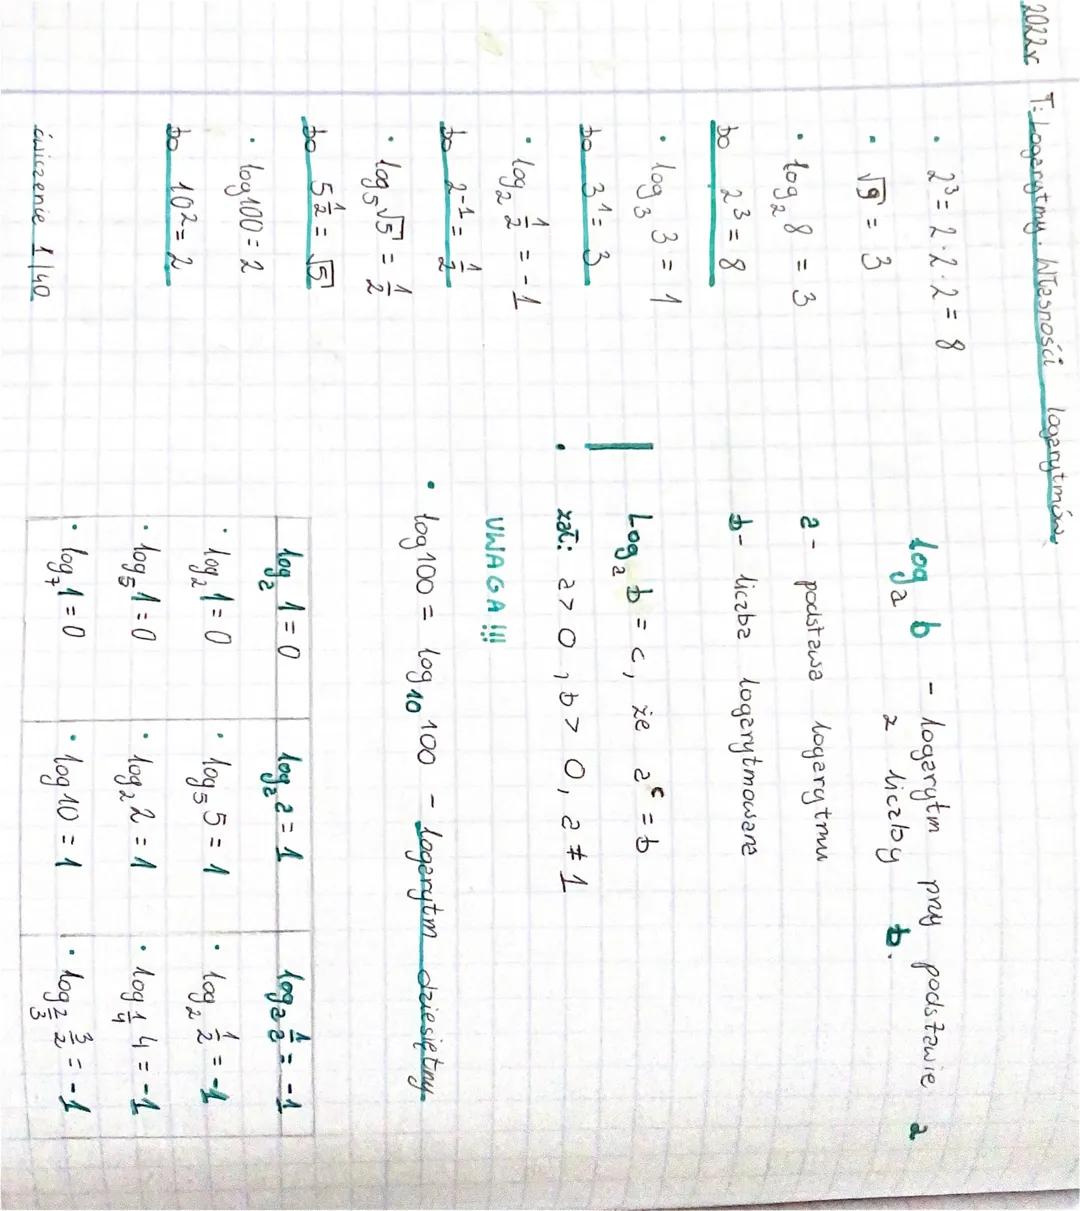 2022r T: Logarytmy. Własności logarytmów.
• 2³ = 2·2·2 = 8
• √9 = 3
• log₂ 8 = 3
bo 2³ = 8
• log₃ 3 = 1
bo 3¹ = 3
• log₂ 1/2 = -1
bo 2⁻¹ = 1/2
• log₅ √5 = 1/2
bo 5^(1/2) = √5
• log 100 = 2
bo 10² = 2
ćwiczenie 1/40
logₐ b - logarytm przy podstawie a
z liczby b.
a - podstawa logarytmu
b - liczba logarytmowana
Logₐ b = c, że aᶜ = b
zał: a > 0, b > 0, a ≠ 1
UWAGA!!!
• log 100 = log₁₀ 100 - logarytm dziesiętny
logₐ 1 = 0 logₐ a = 1 logₐ 1/a = -1
• log₂ 1 = 0 • log₅ 5 = 1 • log₂ 1/2 = -1
• log₅ 1 = 0 • log₂ 2 = 1 • log_(1/4) 4 = -1
• log₇ 1 = 0 • log 10 = 1 • log_(2/3) 3/2 = -1